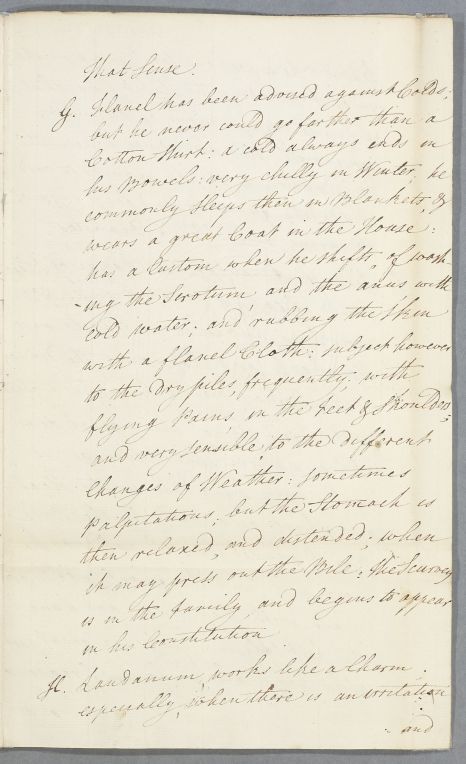 that Sense.
G. Flanel has been advised against Colds;
but he never could go farther than a
Cotton Shirt: a cold always ends in
his Bowels: very chilly in Winter, he
commonly Sleeps then in Blankets, &
wears a great Coat in the House:
has a Custom when he shifts, of wash-
-ing the Scrotum and the anus with
Cold water, and rubbing the Skin
with a flanel Cloth: subject however
to the Dry piles, frequently: with
flying Pains, in the feet & Shoulders;
and very sensible, to the different
Changes of Weather: sometimes
Palpitations; but the Stomach is
then relaxed, and distended; when
it may press out the Bile: the Scurvey
is in the family and begins to appear
in his Constitution
H. Laudanum works like a Charm.
especially, when there is an irritation
- and